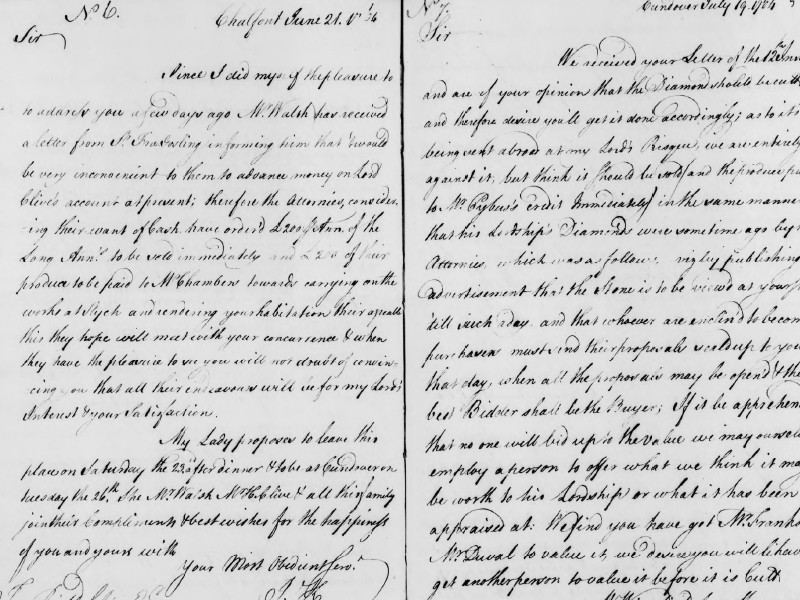 No. 6.
Chalfont June 21. 1764
Sir
Since I did myself the pleasure to
to address you a few days ago Mr. Walsh has received
a letter from Sr. Fra: Gosling informing him that it would
be very inconvenient to them to advance money on Lord
Clive's account at present; therefore the Attornies, consider-
ing their want of Cash have orderd £200 P Ann. of the
Long Anns. to be sold immediately and £200 of their
produce to be paid to Mr. Chambers towards carrying on the
works at Stych and rendering your habitation there agreeable
this they hope will meet with your concurrence & when
they have the pleasure to see you will not doubt of convin-
cing you that all their endeavours will be for my Lord's
Interest & your Satisfaction.
My Lady proposes to leave this
place on Saturday the 23d. after dinner & to be at Cundover on
tuesday the 26th. She Mr. Walsh Mrs. Clive & all this family
join their Compliments & best wishes for the happiness
of you and yours with
Your Most Obedient Servt.
No. 7.
Cundover July 19. 1764
Sir
We received your Letter of the 12th. Inst
and are of your opinion that the Diamond should be cutt
and therefore desire you'll get it done accordingly; as to it's
being sent abroad at my Lord's Risque, we are entirely
against it, but think it should be sold and the produce p
to Mr. Pybus's credit Immediately in the same manner
that his Lordship's Diamonds were some time ago by
Attornies, which was as follows. viz. by publishing
advertisement that the Stone is to be viewed at your
'till such a day. and that whoever are enclin'd to becom
purchasers must send their proposals seald up to you
that day, when all the proposals may be open'd & the
best Bidder shall be the Buyer; If it be apprehen
that no one will bid up to the value we may ourselv
employ a person to offer what we think it may
be worth to his Lordship or what it has been
appraised at: We find you have got Mr. Franks
Mr. Duval to value it, we desire you will likew
get another person to value it before it is Cutt.